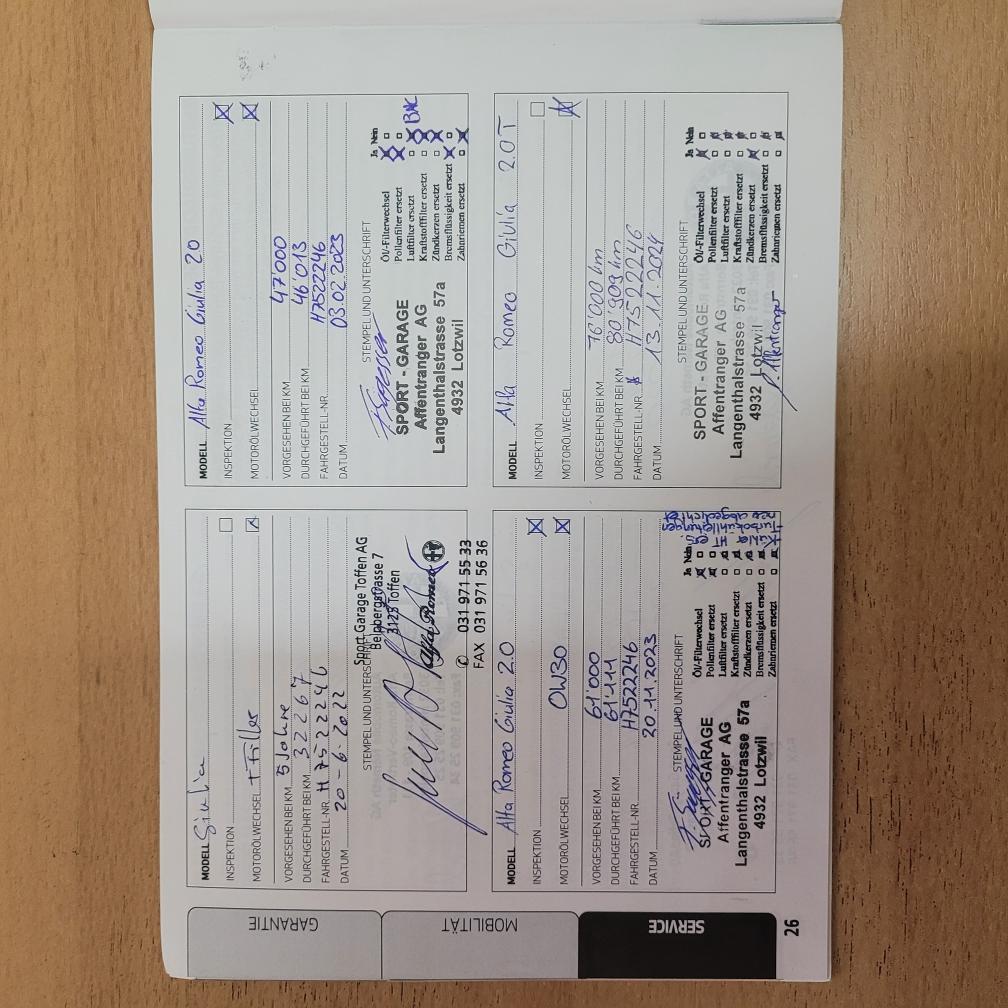 GARANTIE
MOBILITÄT
SERVICE
26
MODELL Giulia
INSPEKTION
MOTORÖLWECHSEL + Filter
VORGESEHEN BEI KM 5 Jahre
DURCHGEFÜHRT BEI KM 32267
FAHRGESTELL-NR. H7522246
DATUM 20-6.2022
STEMPEL UND UNTERSCHRIFT
Sport Garage Toffen AG
Belpbergstrasse 7
3125 Toffen
Alfa Romeo
031 971 55 33
FAX 031 971 56 36
MODELL Alfa Romeo Giulia 20
INSPEKTION
MOTORÖLWECHSEL
VORGESEHEN BEI KM 47'000
DURCHGEFÜHRT BEI KM 46'013
FAHRGESTELL-NR. H7522246
DATUM 03.02.2023
STEMPEL UND UNTERSCHRIFT
SPORT - GARAGE
Affentranger AG
Langenthalstrasse 57a
4932 Lotzwil
Ja Nein
Öl/-Filterwechsel
Pollenfilter ersetzt
Luftfilter ersetzt
Kraftstofffilter ersetzt
Zündkerzen ersetzt
Bremsflüssigkeit ersetzt
Zahnriemen ersetzt
MODELL Alfa Romeo Giulia 2.0
INSPEKTION
MOTORÖLWECHSEL 0W30
VORGESEHEN BEI KM 61'000
DURCHGEFÜHRT BEI KM 61'111
FAHRGESTELL-NR. H7522246
DATUM 20.11.2023
STEMPEL UND UNTERSCHRIFT
SPORT - GARAGE
Affentranger AG
Langenthalstrasse 57a
4932 Lotzwil
Ja Nein
Öl/-Filterwechsel
Pollenfilter ersetzt
Luftfilter ersetzt
Kraftstofffilter ersetzt
Zündkerzen ersetzt
Bremsflüssigkeit ersetzt
Zahnriemen ersetzt
MODELL Alfa Romeo Giulia 2.0T
INSPEKTION
MOTORÖLWECHSEL
VORGESEHEN BEI KM 76'000 km
DURCHGEFÜHRT BEI KM 80'909 km
FAHRGESTELL-NR. H7522246
DATUM 13.11.2024
STEMPEL UND UNTERSCHRIFT
SPORT - GARAGE
Affentranger AG
Langenthalstrasse 57a
4932 Lotzwil
Ja Nein
Öl/-Filterwechsel
Pollenfilter ersetzt
Luftfilter ersetzt
Kraftstofffilter ersetzt
Zündkerzen ersetzt
Bremsflüssigkeit ersetzt
Zahnriemen ersetzt